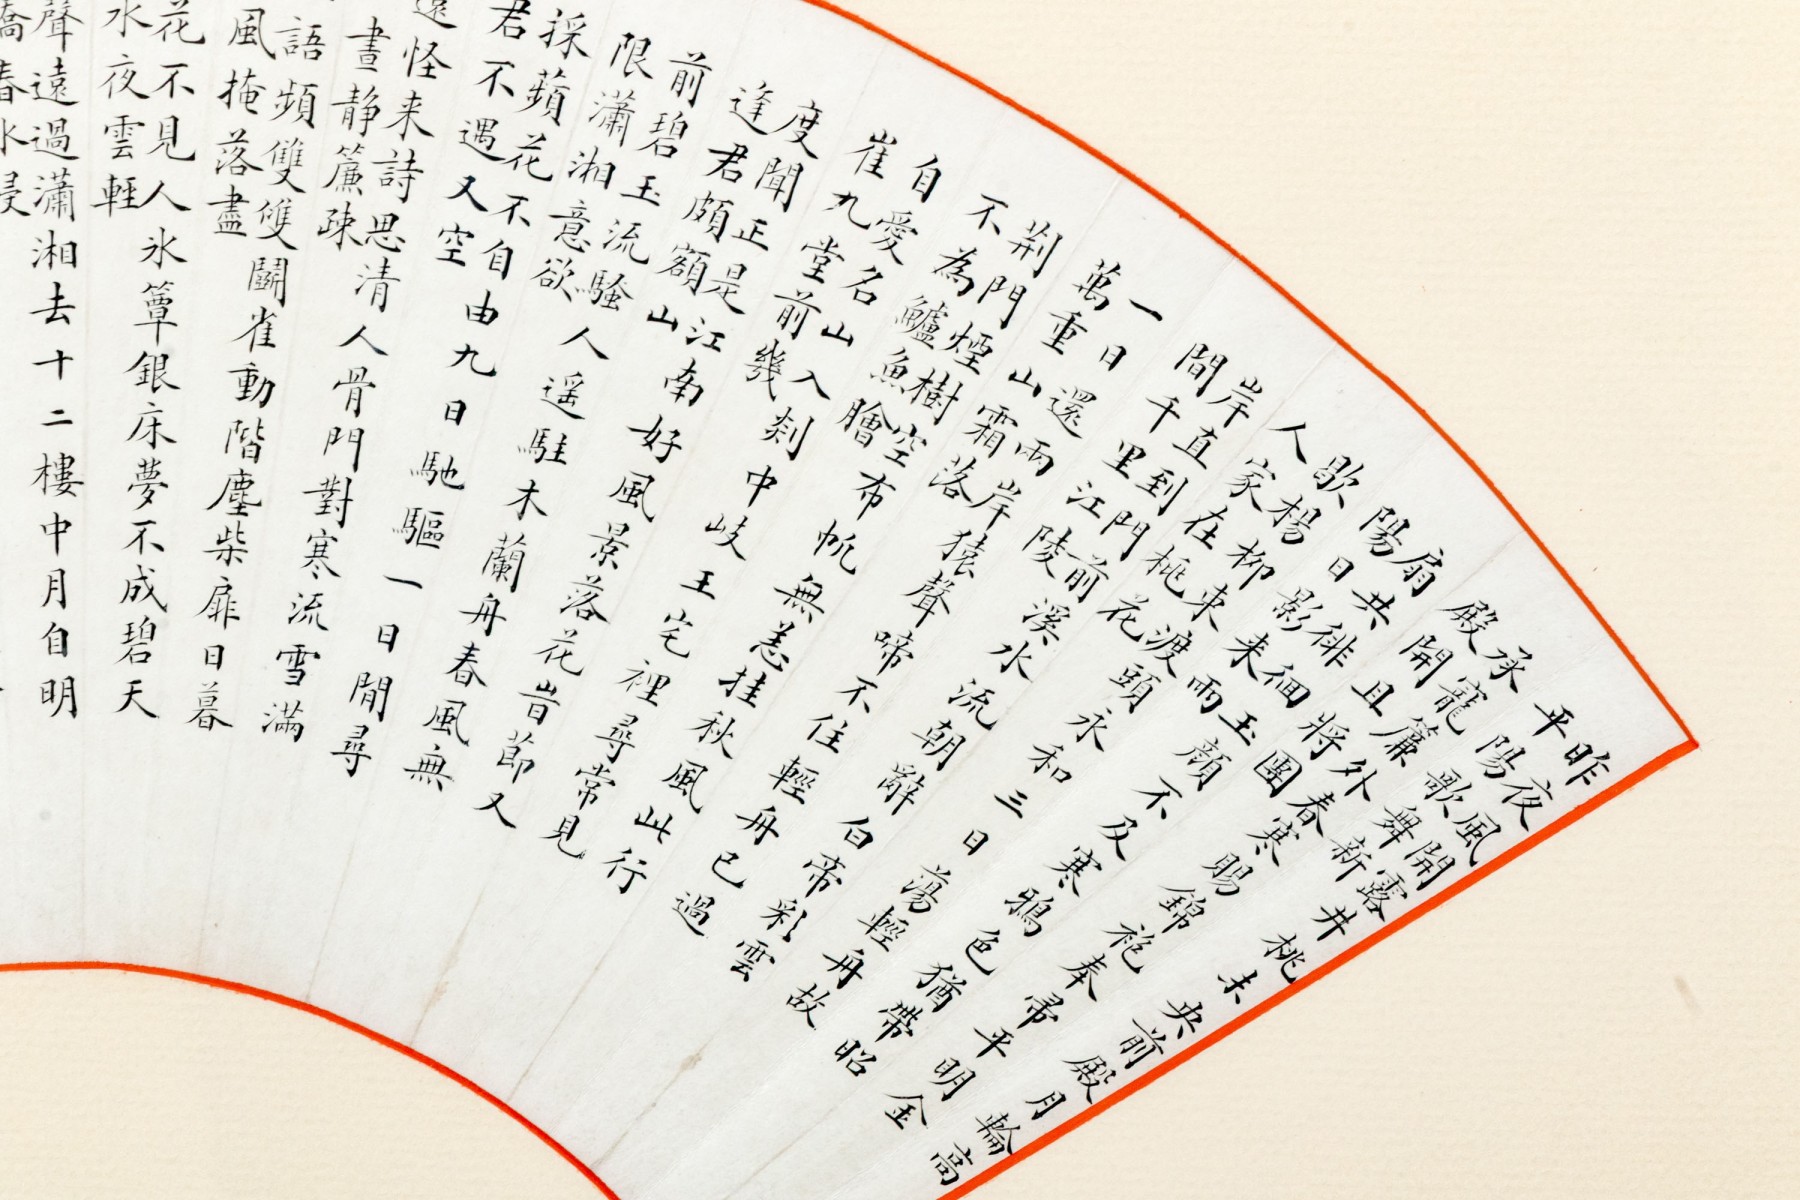 昨夜風開露井桃未央前殿月輪高
平陽歌舞新
承寵簾外春寒賜錦袍奉帚平明金
殿開且將團
扇共徘徊玉顏不及寒鴉色猶帶昭
陽日影来雨
歇楊柳東渡頭永和三日蕩輕舟故
人家在桃花
岸直到門前溪水流朝辭白帝彩雲
間千里江陵
一日還兩岸猿聲啼不住輕舟已過
萬重山霜落
荊門煙樹空布帆無恙挂秋風此行
不為鱸魚膾
自愛名山入剡中岐王宅裡尋常見
崔九堂前幾
度聞正是江南好風景落花旹節又
逢君頗額山
前碧玉流騷人遥駐木蘭舟春風無
限瀟湘意欲
採蘋花不自由九日馳驅一日閒尋
君不遇又空
還怪来詩思清人骨門對寒流雪滿
晝静簾疎
語頻雙雙鬬雀動階塵柴扉日暮
風掩落盡
花不見人氷簟銀床夢不成碧天
水夜雲輕
聲遠過瀟湘去十二樓中月自明
橋春水浸